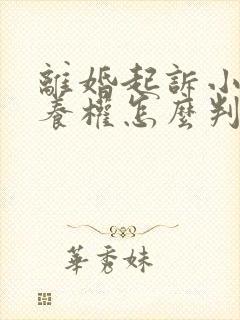 離婚起訴小
養權怎麼判
華秀妹